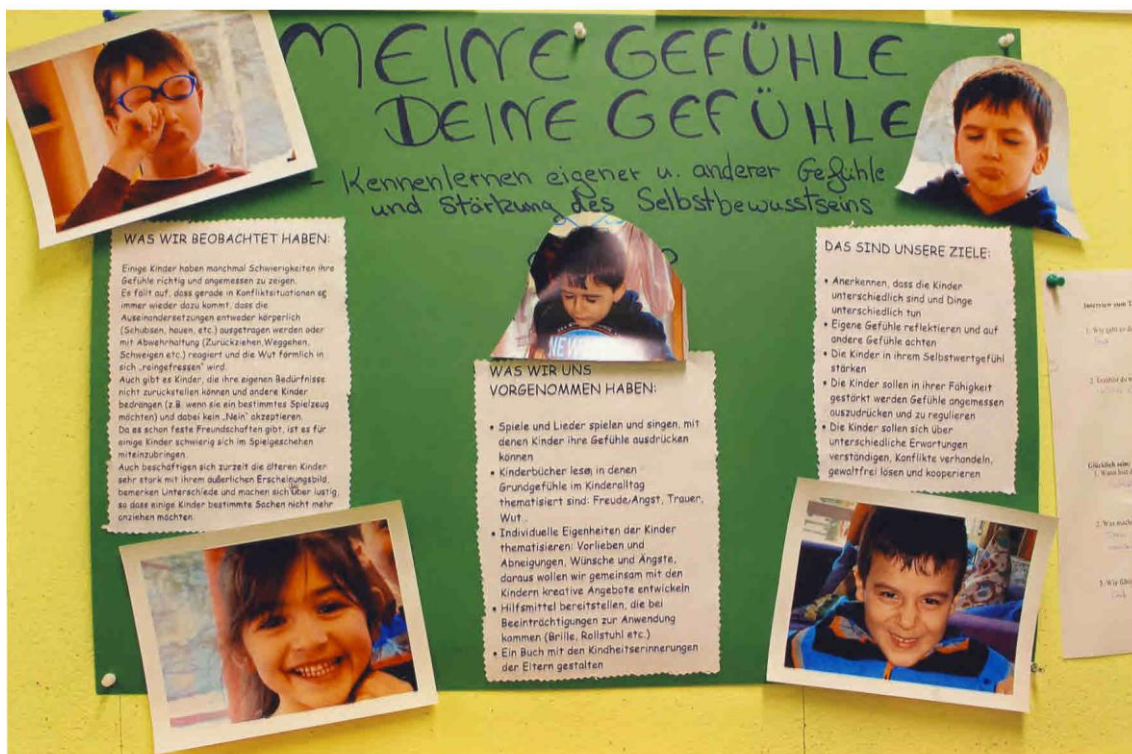 MEINE GEFÜHLE
DEINE GEFÜHLE
- Kennenlernen eigener u. anderer Gefühle
und Stärkung des Selbstbewusstseins
WAS WIR BEOBACHTET HABEN:
Einige Kinder haben manchmal Schwierigkeiten ihre
Gefühle richtig und angemessen zu zeigen.
Es fällt auf, dass gerade in Konfliktsituationen es
immer wieder dazu kommt, dass die
Auseinandersetzungen entweder körperlich
(Schubsen, hauen, etc.) ausgetragen werden oder
mit Abwehrhaltung (Zurückziehen, Weggehen,
Schweigen etc.) reagiert und die Wut förmlich in
sich „reingefressen" wird.
Auch gibt es Kinder, die ihre eigenen Bedürfnisse
nicht zurückstellen können und andere Kinder
bedrängen (z.B. wenn sie ein bestimmtes Spielzeug
möchten) und dabei kein „Nein" akzeptieren.
Da es schon feste Freundschaften gibt, ist es für
einige Kinder schwierig sich im Spielgeschehen
miteinzubringen.
Auch beschäftigen sich zurzeit die älteren Kinder
sehr stark mit ihrem äußerlichen Erscheinungsbild,
bemerken Unterschiede und machen sich über lustig,
so dass einige Kinder bestimmte Sachen nicht mehr
anziehen möchten.
WAS WIR UNS
VORGENOMMEN HABEN:
• Spiele und Lieder spielen und singen, mit
denen Kinder ihre Gefühle ausdrücken
können
• Kinderbücher lesen, in denen
Grundgefühle im Kinderalltag
thematisiert sind: Freude, Angst, Trauer,
Wut...
• Individuelle Eigenheiten der Kinder
thematisieren: Vorlieben und
Abneigungen, Wünsche und Ängste,
daraus wollen wir gemeinsam mit den
Kindern kreative Angebote entwickeln
• Hilfsmittel bereitstellen, die bei
Beeinträchtigungen zur Anwendung
kommen (Brille, Rollstuhl etc.)
• Ein Buch mit den Kindheitserinnerungen
der Eltern gestalten
DAS SIND UNSERE ZIELE:
• Anerkennen, dass die Kinder
unterschiedlich sind und Dinge
unterschiedlich tun
• Eigene Gefühle reflektieren und auf
andere Gefühle achten
• Die Kinder in ihrem Selbstwertgefühl
stärken
• Die Kinder sollen in ihrer Fähigkeit
gestärkt werden Gefühle angemessen
auszudrücken und zu regulieren
• Die Kinder sollen sich über
unterschiedliche Erwartungen
verständigen, Konflikte verhandeln,
gewaltfrei lösen und kooperieren
Interview zum
1. Wie geht es
2.
Glücklich sein:
1. Wann bist
2. Was mach
3. Wie fühl